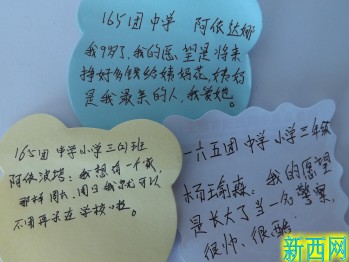 165团中学 阿依达娜
我9岁了,我的愿望是将来
挣好多钱给姨妈花,姨妈
是我最亲的人,我爱她。
165团中学小学三(1)班
阿依波塔:我想有一个家,
那样周六、周日我就可以
不用再呆在学校了。
一六五团中学小学三年级
杨玉森:我的愿望
是长大了当一名警察,
很帅、很酷。
新西网